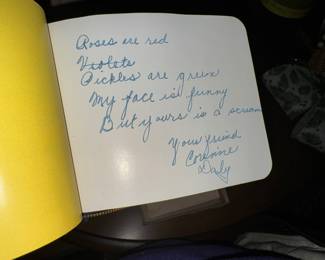 Roses are red
Violets
Pickles are green
My face is funny
But yours is a scream
Your friend
Corinne
Daly